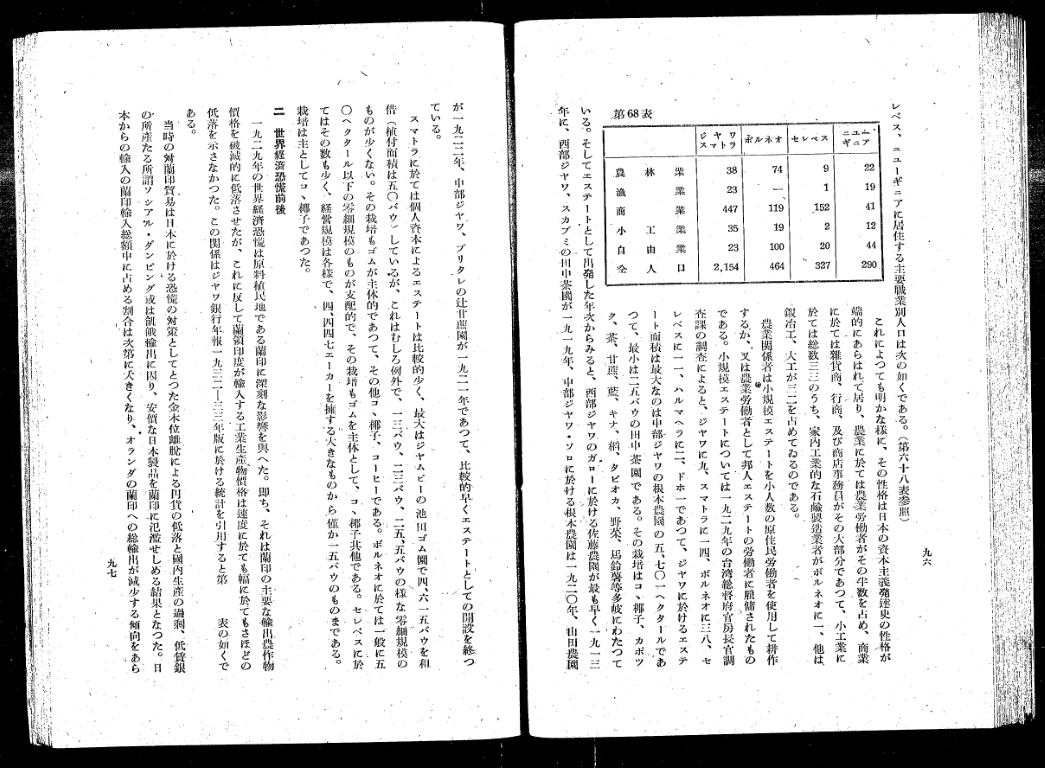 レベス、ニューギニアに居住する主要職業別人口は次の如くである。（第六十八表参照）
第68表
ジヤワスマトラ ボルネオ セレベス ニューギニア
農林業 38 74 9 22
漁業 23 — 1 19
商業 447 119 152 41
小工業 35 19 2 12
自由業 23 100 20 44
全人口 2,154 464 327 290
これによつても明かな様に、その性格は日本の資本主義発達史の性格が
端的にあらはれて居り、農業に於ては農業労働者がその半数を占め、商業
に於ては雑貨商、行商、及び商店事務員がその大部分であつて、小工業に
於ては総数三三のうち、家内工業的な石鹸製造業者がボルネオに一、他は
鍛冶工、大工が三二を占めてゐるのである。
農業関係者は小規模エステートを小人数の原住民労働者を使用して耕作
するか、又は農業労働者として邦人エステートの労働者に雇傭されたもの
である。小規模エステートについては一九二九年の台湾総督府官房長官調
査課の調査によると、ジヤワに九、スマトラに一四、ボルネオに三八、セ
レベスに一一、ハルマヘラに二、ドホ一であつて、ジヤワに於けるエステ
ート面積は最大なのは中部ジヤワの根本農園の五、七〇一ヘクタールであ
つて、最小は二五バウの田中茶園である。その栽培はコヽ椰子、カポツ
ク、茶、甘蔗、藍、キナ、稻、タピオカ、野菜、馬鈴薯等多岐にわたつて
いる。そしてエステートとして出発した年次からみると、西部ジヤワのガローに於ける佐藤農園が最も早く一九一三
年に、西部ジヤワ、スカブミの田中茶園が一九一九年、中部ジヤワ・ソロに於ける根本農園は一九二〇年、山田農園
九六
が一九二二年、中部ジヤワ、ブリタレの辻甘蔗園が一九二一年であつて、比較的早くエステートとしての開設を終つ
ている。
スマトラに於ては個人資本によるエステートは比較的少く、最大はジヤムビーの池田ゴム園で四、六一五バウを租
借（植付面積は五〇バウ）しているが、これはむしろ例外で、一三バウ、二三バウ、二五、五バウの様な零細規模の
ものが少くない。その栽培もゴムが主体的であつて、その他コヽ椰子、コーヒーである。ボルネオに於ては一般に五
〇ヘクタール以下の零細規模のものが支配的で、その栽培もゴムを主体として、コヽ椰子其他である。セレベスに於
てはその数も少く、経営規模は各様で、四、四四七エーカーを擁する大きなものから僅か一五バウのものまである。
栽培は主としてコヽ椰子であつた。
二　世界経済恐慌前後
一九二九年の世界経済恐慌は原料植民地である蘭印に深刻な影響を與へた。即ち、それは蘭印の主要な輸出農作物
價格を破滅的に低落させたが、これに反して蘭領印度が輸入する工業生産物價格は速度に於ても幅に於てもさほどの
低落を示さなかつた。この関係はジヤワ銀行年報一九三二—三三年版に於ける統計を引用すると第　　表の如くで
ある。
当時の対蘭印貿易は日本に於ける恐慌の対策としてとつた金本位離脱による円貨の低落と國内生産の過剰、低賃銀
の所産たる所謂ソシアル・ダンピング或は飢餓輸出に因り、安價な日本製品を蘭印に氾濫せしめる結果となつた。日
本からの輸入の蘭印輸入総額中に占める割合は次第に大きくなり、オランダの蘭印への総輸出が減少する傾向をあら
九七